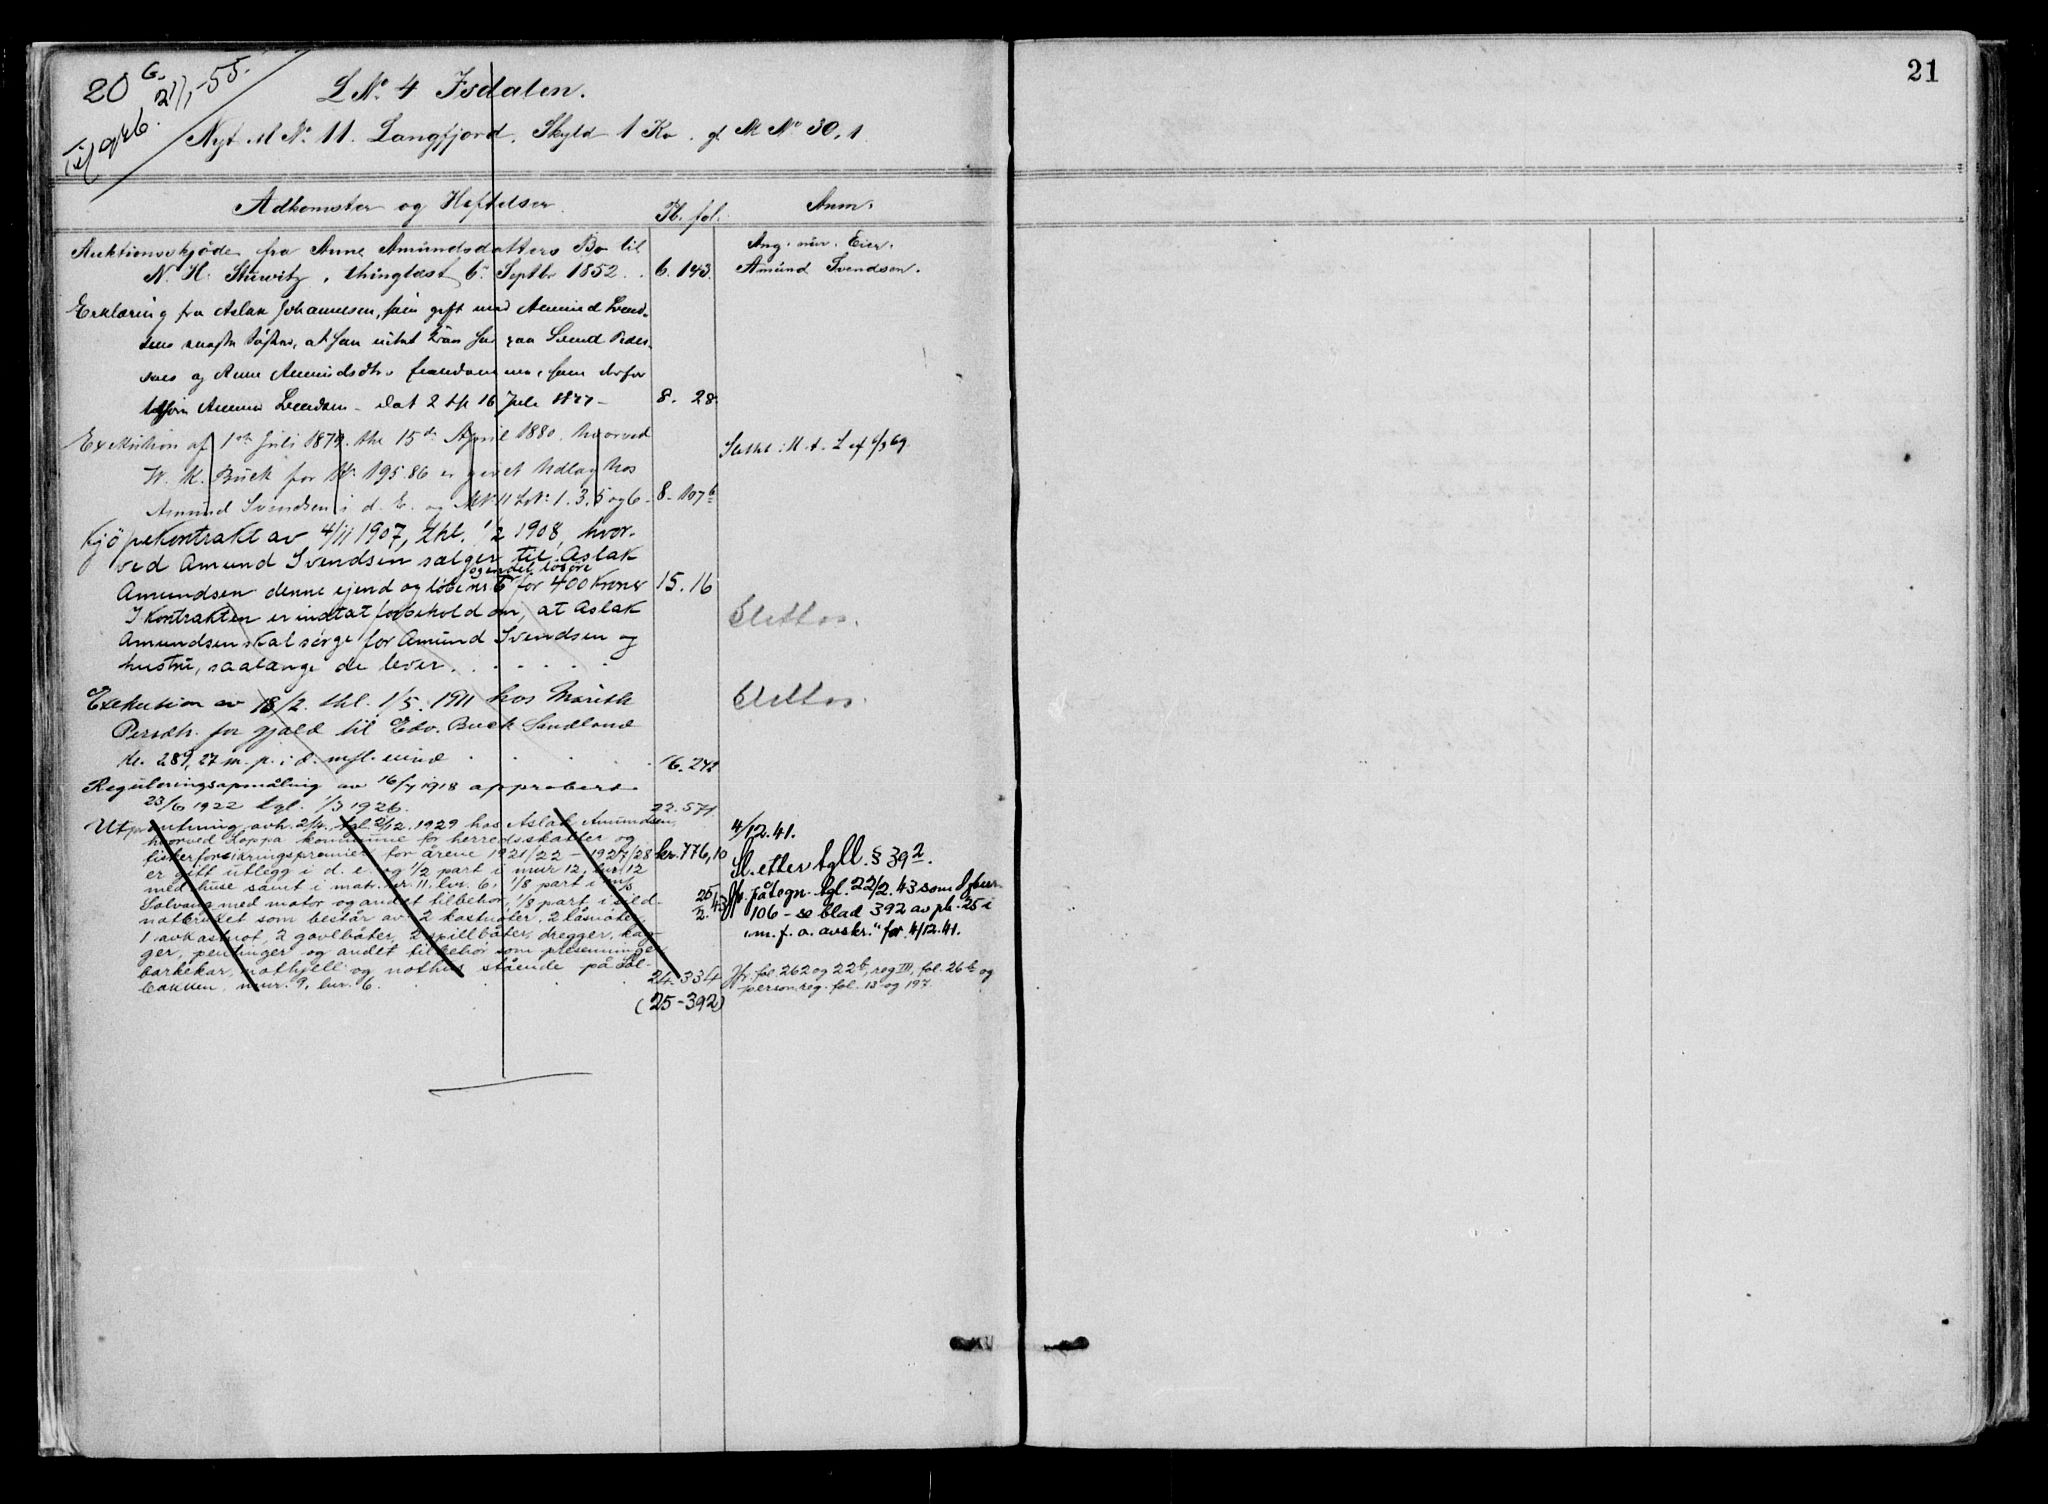 20 b.
21/1-55.
21
L No. 4 Isdalen.
Nyt M No. 11. Langfjord. Skyld 1 Kr. gl. M No 30,1
Adkomster og Heftelser Pb. fol. Anm.
Auktionsskjöde fra Anne Amundsdatters Bo til Ang. nuv. Eier.
N. H. thinglæst 6. Septbr 1852. 6. 143. Amund Svendsen.
Erklæring fra Aslak Johannesen, som gift med Amund Svend-
sens Söster, at han intet Krav har paa Svend Peder-
sens og Anne Amundsdtr.
Amund Svendsen - dat 2 16 Juli 8. 28.
Exekution af 1ste Juli 1879. thl 15de April 1880. hvorved Slettet
W. M. Buck for Kr. 195.86 er givet Udlag hos
Amund Svendsen i d. E. og M.N. 11 L.N. 1. 3. 5 og 6. 8. 107 b
Kjöpekontrakt av 4/11 1907, thl. 1/2 1908, hvor-
ved Amund Svendsen sælger til Aslak
og endel lösöre
Amundsen denne ejend og löbenr 6 for 400 Kroner 15. 16
I Kontrakten er indtat forbehold om, at Aslak Slettes.
Amundsen skal sörge for Amund Svendsen og
hustru, saalænge de lever.
Exekution av 18/2. thl. 1/5. 1911 hos Marith Slettes.
Persdtr. for gjæld til Edv. Buck Sandland
kr. 289,27 m. p. i d. mfl. eiend 16. 242
Reguleringsopmåling av 16/7 1918 approbert
23/6 1922 tgl. 1/3 1926. 22. 571
Utpantning avh. 2/4. tgl. 2/12. 1929 hos Aslak Amundsen, 4/12.41.
hvorved Loppa kommune for herredsskatter og
fiskerforsikringspremier for årene 1921/22 - 1927/28 kr. 776,10 Sl. etter tgll. § 39 2.
er gitt utlegg i d. e. og 1/2 part i mnr 12, lnr 12
med huse samt i matr. nr. 11. lnr. 6. 1/8 part i m/s 25/2. 43 Jfr. påtegn. tgl. 22/2. 43 som dgbnr.
Solvang med motor og andet tilbehör, 1/8 part i sild- 106 - se blad 392 av pb. 25 i
notbruket som består av 2 kastnöter, 2 låsnöter, "m. f. a. avskr." for 4/12.41.
1 avkastnot, 2 gavlbåter, 2 spillbåter, dregger, kag-
ger, pentinger og andet tilbehör som presenninger,
barkekar, nothjell og nothus stående på Sol- 24-334 Jfr. fol. 262 og 22 b, reg III, fol. 26 b og
bakken, mnr. 9, lnr. 6. personreg. fol. 13 og 197.
(25-392)